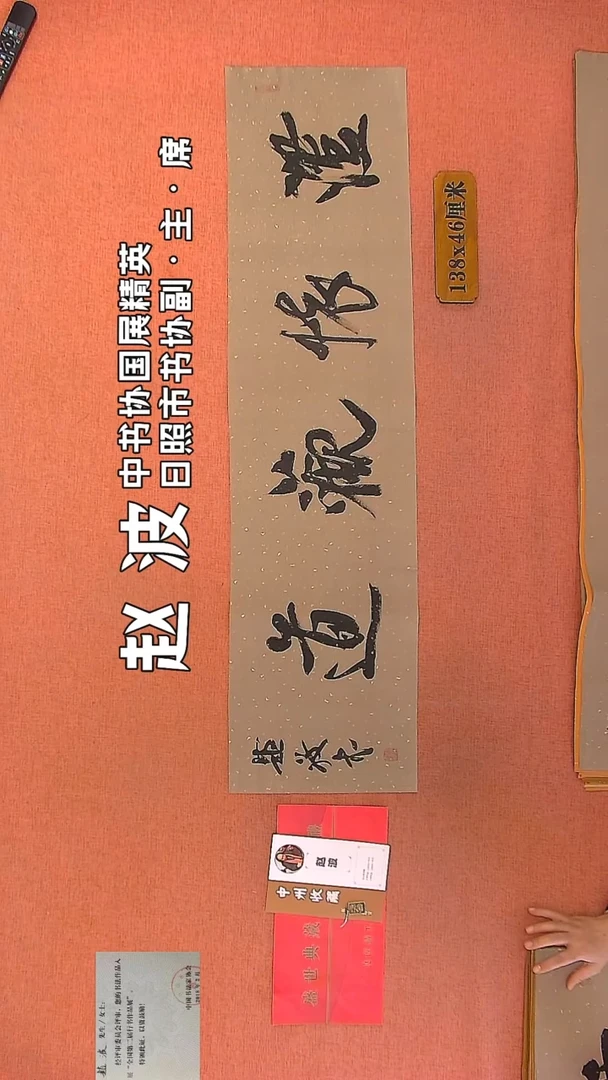 中书协国展精英
赵波 日照市书协副·主·席
澄怀观道
赵波书
138x46厘米
赵波
中州收藏
盛世典藏
赵波 先生/女士:
经评审委员会评审，您的书法作品入
展“全国第二届行书作品展”。
特颁此证，以资鼓励！
中国书法家协会